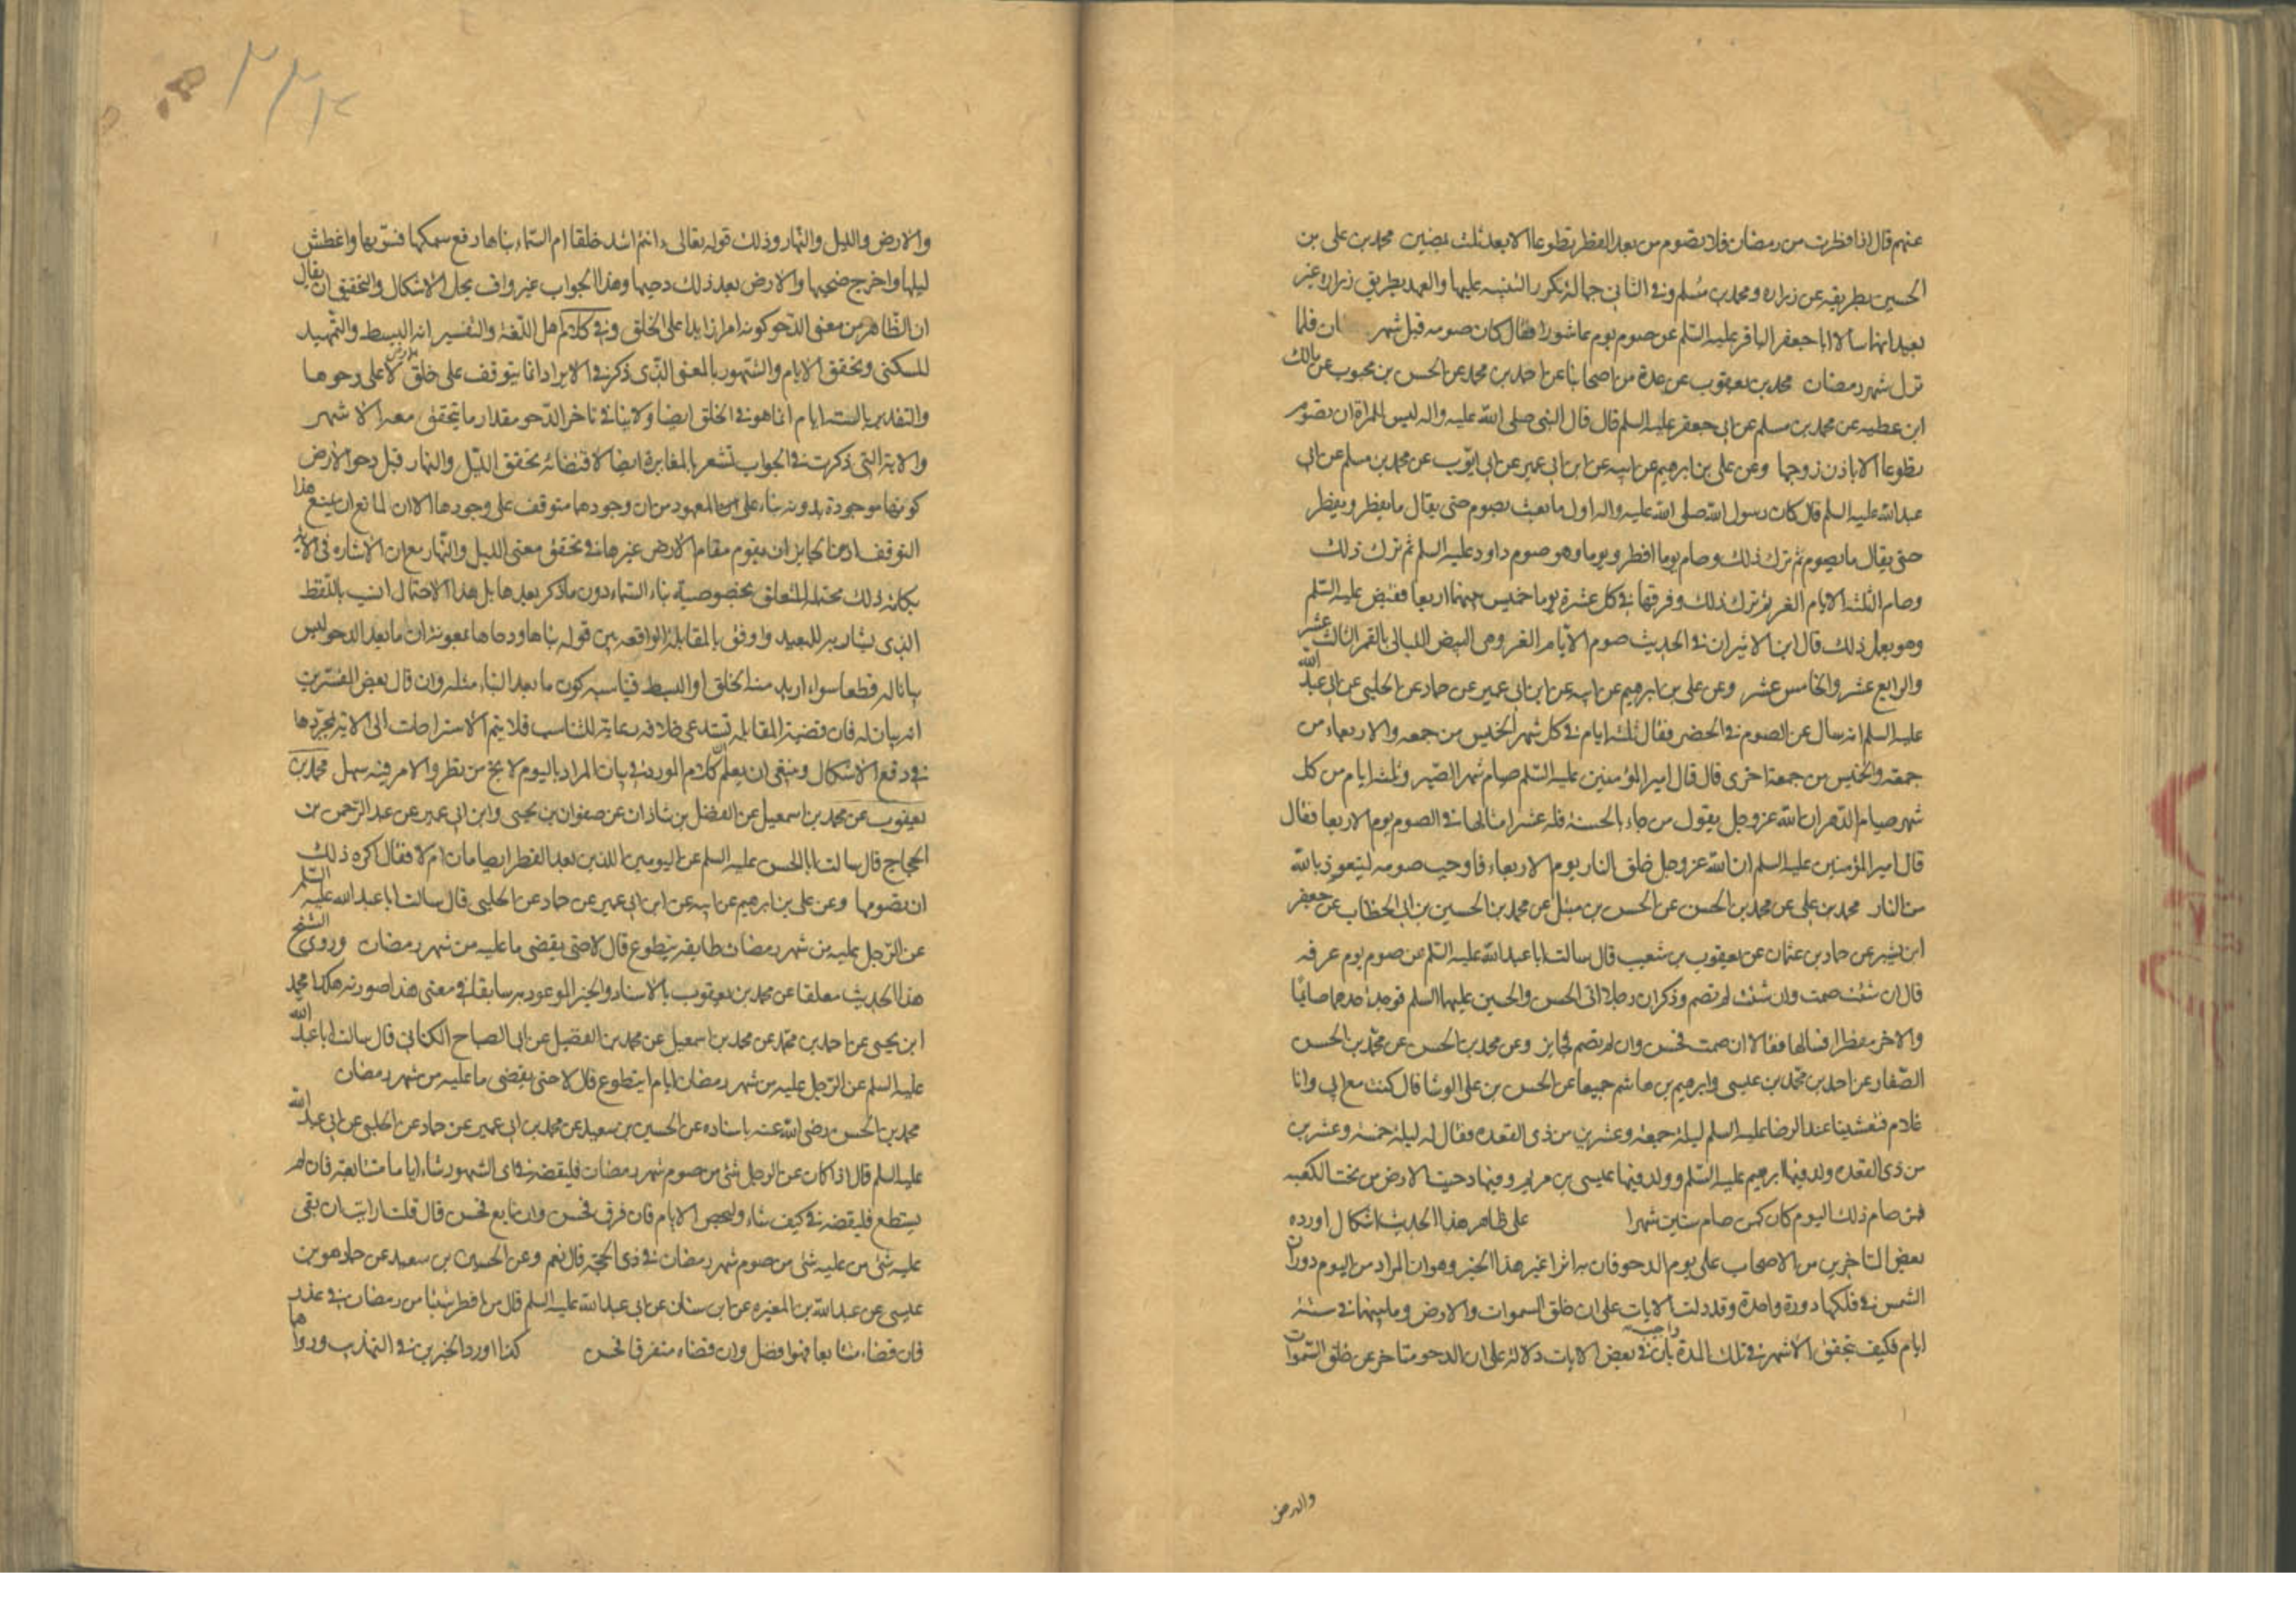 عنهم قال اذا افطرت من رمضان فلا تصوم من بعد الفطر تطوعا الا بعد ثلث يمضين محمد بن علي بن
الحسين بطريقه عن زراره ومحمد بن مسلم وفي الثاني جهالة تكرر التنبيه عليها والعهد بطريق زراره غير
بعيد انهما سالا ابا جعفر الباقر عليه السلم عن صوم يوم عاشورا فقال كان صومه قبل شهر ان فلما
نزل شهر رمضان محمد بن يعقوب عن عدة من اصحابنا عن احمد بن محمد عن الحسن بن محبوب عن مالك
ابن عطيه عن محمد بن مسلم عن ابي جعفر عليه السلم قال قال النبي صلى الله عليه واله ليس للمراة ان تصوم
تطوعا الا باذن زوجها وعن علي بن ابرهيم عن ابيه عن ابن ابي عمير عن ابي ايوب عن محمد بن مسلم عن ابي
عبد الله عليه السلم قال كان رسول الله صلى الله عليه واله اول ما بعث يصوم حتى يقال ما يفطر ويفطر
حتى يقال ما يصوم ثم ترك ذلك وصام يوما وافطر يوما وهو صوم داود عليه السلم ثم ترك ذلك
وصام الثلثه الايام الغر ثم ترك ذلك وفرقها في كل عشرة يوما خميس بينهما اربعا فقبض عليه السلم
وهو يعمل ذلك قال ابن الاثير ان في الحديث صوم الايام الغر وهي البيض الليالي بالقمر الثالث عشر
والرابع عشر والخامس عشر وعن علي بن ابرهيم عن ابيه عن ابن ابي عمير عن حماد عن الحلبي عن ابي عبد الله
عليه السلم انه سال عن الصوم في الحضر فقال ثلثه ايام في كل شهر الخميس من جمعه والاربعاء من
جمعه والخميس من جمعة اخرى قال قال امير المؤمنين عليه السلم صيام شهر الصبر وثلثه ايام من كل
شهر صيام الدهر ان الله عز وجل يقول من جاء بالحسنة فله عشر امثالها في الصوم يوم الاربعا فقال
قال امير المؤمنين عليه السلم ان الله عز وجل خلق النار يوم الاربعاء فاوجب صومه ليتعوذ بالله
من النار محمد بن علي عن محمد بن الحسن عن الحسن بن متيل عن محمد بن الحسين بن ابي الخطاب عن جعفر
ابن بشير عن حماد بن عثمان عن يعقوب بن شعيب قال سالت ابا عبد الله عليه السلم عن صوم يوم عرفه
قال ان شئت صمت وان شئت لم تصم وذكر ان رجلا اتى الحسن والحسين عليهما السلم فوجد احدهما صايما
والاخر مفطرا فسالهما فقالا ان صمت فحسن وان لم تصم فجايز وعن محمد بن الحسن عن محمد بن الحسن
الصفار عن احمد بن محمد بن عيسى وابرهيم بن هاشم جميعا عن الحسن بن علي الوشا قال كنت مع ابي وانا
غلام فتعشينا عند الرضا عليه السلم ليلة خمسة وعشرين من ذي القعده فقال له ليلة خمسة وعشرين
من ذي القعده ولد فيها ابرهيم عليه السلم وولد فيها عيسى بن مريم وفيها دحيت الارض من تحت الكعبه
فمن صام ذلك اليوم كان كمن صام ستين شهرا على ظاهر هذا الحديث اشكال اورده
بعض المتاخرين من الاصحاب على يوم الدحو فان به اثرا غير هذا الخبر وهو ان المراد من اليوم دوران
الشمس في فلكها دورة واحدة وقد دلت الايات على ان خلق السموات والارض وما بينهما في ستة
ايام فكيف يتحقق الاشهر في تلك المدة واجيب بان في بعض الايات دلالة على ان الدحو متاخر عن خلق السموات
والارض
والارض والليل والنهار وذلك قوله تعالى ءانتم اشد خلقا ام السماء بناها رفع سمكها فسويها واغطش
ليلها واخرج ضحيها والارض بعد ذلك دحيها وهذا الجواب غير واف بحل الاشكال والتحقيق ان يقال
ان الظاهر من معنى الدحو كونه امرا زايدا على الخلق وفي كلام اهل اللغة والتفسير انه البسط والتمهيد
للسكنى وتحقق الايام والشهور بالمعنى الذي ذكر في الايراد انما يتوقف على خلق الارض لا على دحوها
والتقدير بالستة ايام انما هو في الخلق ايضا ولا ينافي تاخر الدحو مقدار ما يتحقق معه الاشهر
والاية التي ذكرت في الجواب تشعر بالمغايرة ايضا لاقتضائه تحقق الليل والنهار قبل دحو الارض
كونها موجودة بدونه بناء على ان المعهود من ان وجودهما متوقف على وجودها الا ان لمانع ان يمنع هذا
التوقف اذ من الجايز ان يقوم مقام الارض غيرها في تحقق معنى الليل والنهار مع ان الاشاره في الاية
بكلمة ذلك محتملة للتعلق بخصوصية بناء السماء دون ما ذكر بعدها بل هذا الاحتمال انسب باللفظ
الذي يشار به للبعيد واوفق بالمقابلة الواقعه بين قوله بناها ودحاها بمعونة ان ما بعد الدحو ليس
بيانا له قطعا سواء اريد منه الخلق او البسط فيناسبه كون ما بعد البناء مثله وان قال بعض المفسرين
انه بيان له فان قضية المقابله تستدعي خلافه رعاية للتناسب فلا يتم الاستراحت الى الاية بمجردها
في دفع الاشكال وينبغي ان يعلم ان كلام المورد في بيان المراد باليوم لا يخ من نظر والامر فيه سهل محمد بن
يعقوب عن محمد بن اسمعيل عن الفضل بن شاذان عن صفوان بن يحيى وابن ابي عمير عن عبد الرحمن بن
الحجاج قال سالت ابا الحسن عليه السلم عن اليومين اللذين بعد الفطر ايصامان ام لا فقال اكره ذلك
ان تصومها وعن علي بن ابرهيم عن ابيه عن ابن ابي عمير عن حماد عن الحلبي قال سالت ابا عبد الله عليه السلم
عن الرجل عليه من شهر رمضان طايفه يتطوع قال لا حتى يقضي ما عليه من شهر رمضان وروى الشيخ
هذا الحديث معلقا عن محمد بن يعقوب بالاسناد والخبر الموعود به سابقا في معنى هذا صورته هكذا محمد
ابن يحيى عن احمد بن محمد عن محمد بن اسمعيل عن محمد بن الفضيل عن ابي الصباح الكناني قال سالت ابا عبد الله
عليه السلم عن الرجل عليه من شهر رمضان ايام ايتطوع قال لا حتى يقضي ما عليه من شهر رمضان
محمد بن الحسن رضي الله عنه باسناده عن الحسين بن سعيد عن محمد بن ابي عمير عن حماد عن الحلبي عن ابي عبد الله
عليه السلم قال اذا كان عن الرجل شئ من صوم شهر رمضان فليقضه في اي الشهور شاء اياما متتابعه فان لم
يستطع فليقضه في كيف شاء وليحص الايام فان فرق فحسن وان تابع فحسن قال قلت ارايت ان بقي
عليه شئ من عليه شئ من صوم شهر رمضان في ذي الحجة قال نعم وعن الحسين بن سعيد عن حماد هو بن
عيسى عن عبد الله بن المغيره عن ابن سنان عن ابي عبد الله عليه السلم قال من افطر شيئا من رمضان في عذر
فان قضاه متتابعا فهو افضل وان قضاه متفرقا فحسن كذا اورد الخبرين في التهذيب ورواهما